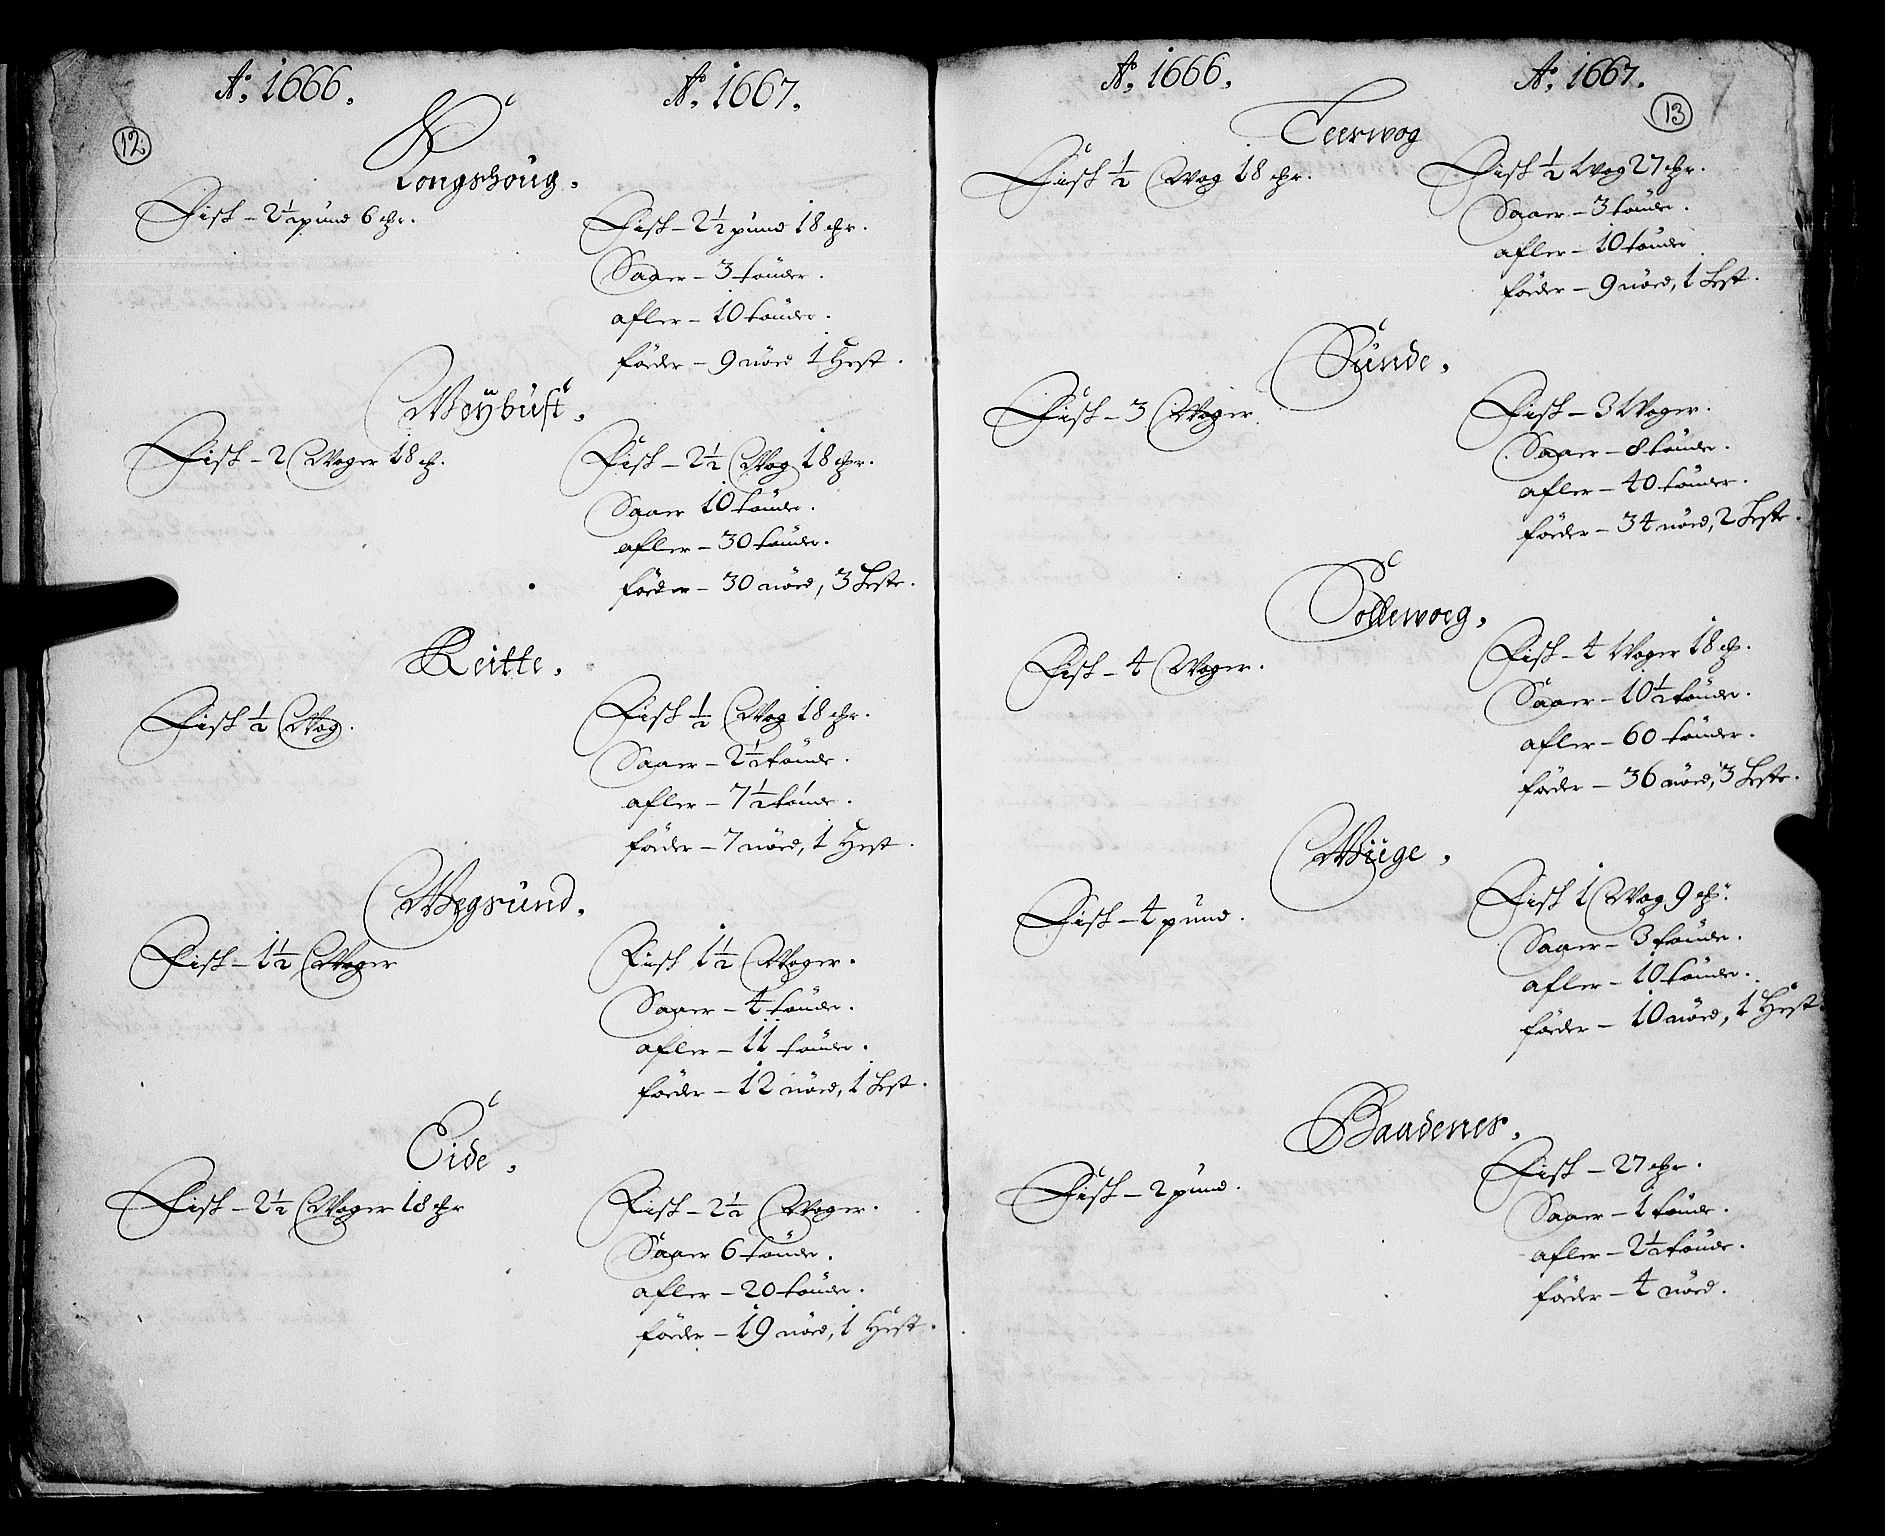 Ao. 1666.
Ao. 1667.
12.
Kongshoug.
Fisk – 2½ pund 6 mr.
Fisk – 2½ pund 18 mr.
Saaer – 3 tønder.
afler – 10 tønder.
føder – 9 nøed 1 Hest.
Weÿbust.
Fisk – 2 Woger 18 mr.
Fisk – 2½ Wog 18 mr.
Saaer 10 tønder.
afler – 30 tønder.
føder – 30 nøed, 3 Heste.
Reitte.
Fisk ½ Wog.
Fisk ½ Wog 18 mr.
Saaer – 2½ tønde.
afler – 7½ tønde.
føder – 7 nøed, 1 Hest.
Wegsund.
Fisk – 1½ Woger
Fisk 1½ Woger.
Saaer – 4 tønder.
afler – 11 tønder.
føder – 12 nøed, 1 Hest.
Eide.
Fisk – 2½ Woger 18 mr
Fisk – 2½ Woger.
Saaer 6 tønder.
afler – 20 tønder.
føder – 19 nøed, 1 Hest.
Ao. 1666.
Ao. 1667.
13
Teerwog
Fisk ½ Wog 18 mr.
Fisk ½ Wog 27 mr.
Saaer – 3 tønder.
afler – 10 tønder
føder – 9 nøed, 1 Hest.
Sunde.
Fisk – 3 Woger.
Fisk – 3 Woger.
Saaer – 8 tønder.
afler – 40 tønder.
føder – 34 nøed, 2 Heste.
Sollewoeg.
Fisk – 4 Woger.
Fisk – 4 Woger 18 mr.
Saaer – 10½ tønder.
afler – 60 tønder.
føder – 36 nøed, 3 Heste.
Wiige.
Fisk – 4 pund.
Fisk 1 Wog 9 mr.
Saaer – 3 tønder.
afler – 10 tønder.
føder – 10 nøed, 1 Hest.
Baadenes.
Fisk – 2 pund.
Fisk – 27 mr.
Saaer – 1 tønde.
afler – 2½ tønde.
føder – 4 nøed.